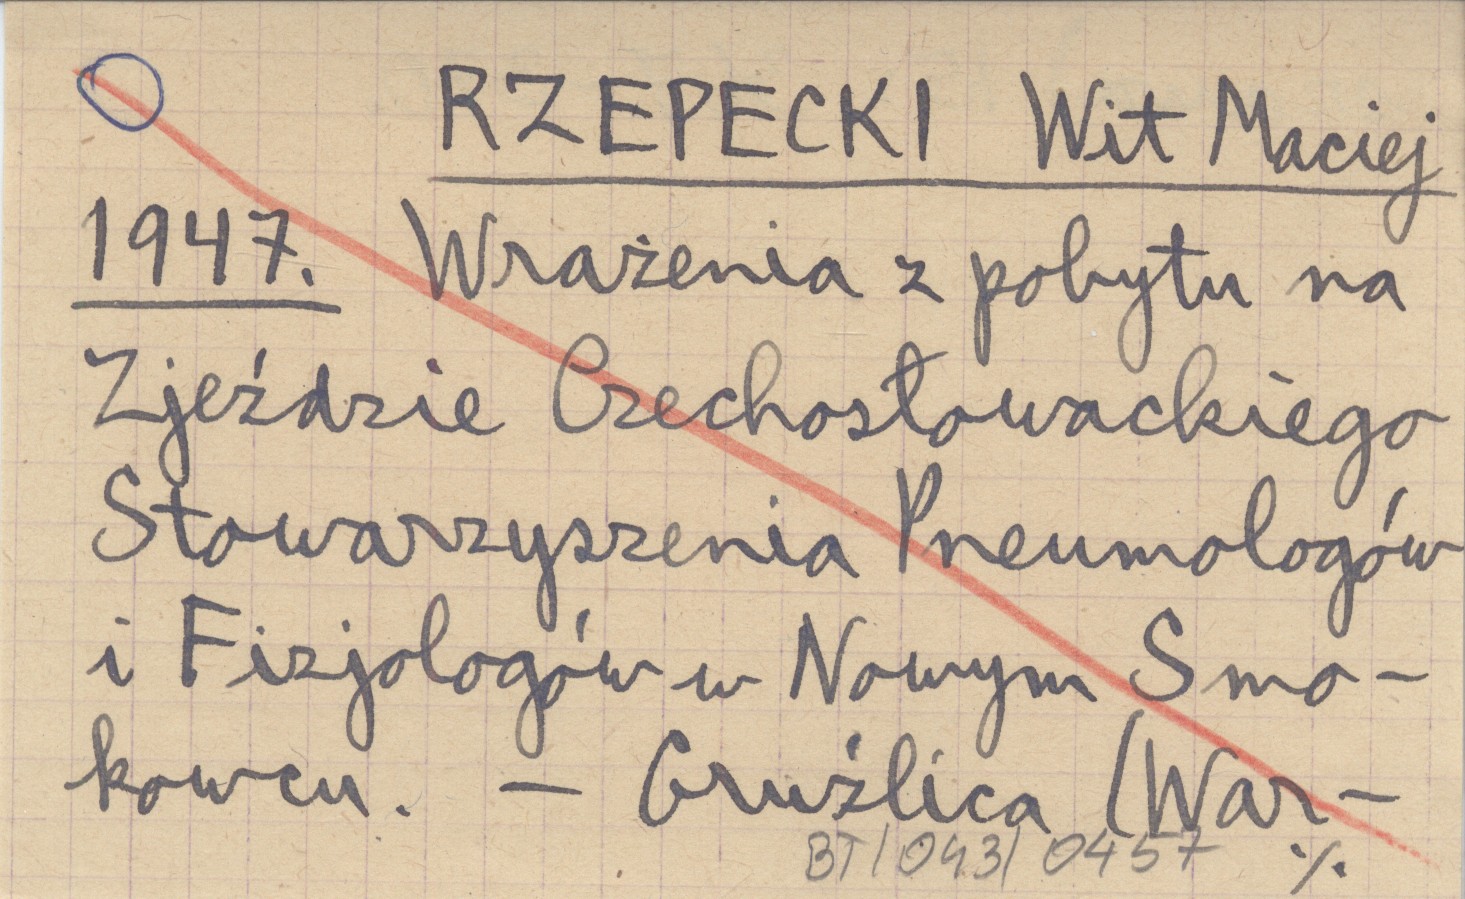 RZEPECKI Wit Maciej
1947. Wrażenia z pobytu na
Zjeździe Czechosłowackiego
Stowarzyszenia Pneumologów
i Fizjologów w Nowym Smo-
kowcu. - Gruźlica (War-
BT/043/0457 ./.